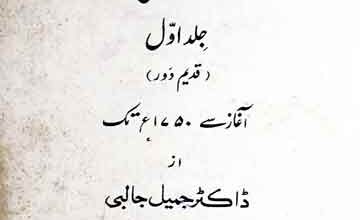 جلد اوّل
(قدیم دَور)
آغاز سے ۱۷۵۰ع تک
از
ڈاکٹر جمیل جالبی